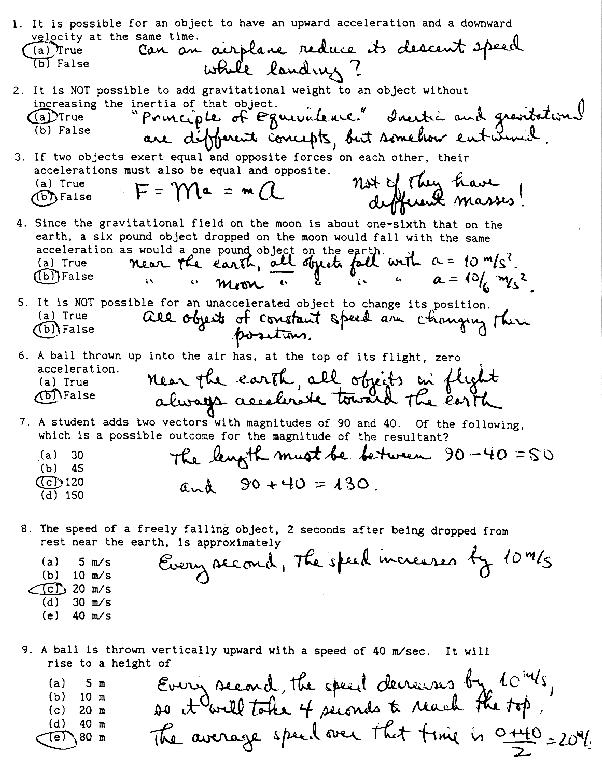 1. It is possible for an object to have an upward acceleration and a downward
velocity at the same time.
(a) True Can an airplane reduce its descent speed
(b) False while landing?
2. It is NOT possible to add gravitational weight to an object without
increasing the inertia of that object.
(a) True "Principle of Equivalence." Inertic and gravitational
(b) False are different concepts, but somehow entwined.
3. If two objects exert equal and opposite forces on each other, their
accelerations must also be equal and opposite.
(a) True F = Ma = mA Not if they have
(b) False different masses!
4. Since the gravitational field on the moon is about one-sixth that on the
earth, a six pound object dropped on the moon would fall with the same
acceleration as would a one pound object on the earth.
(a) True near the earth, all objects fall with a = 10 m/s².
(b) False " " moon " " " " a = 10/6 m/s².
5. It is NOT possible for an unaccelerated object to change its position.
(a) True All objects of constant speed are changing their
(b) False position.
6. A ball thrown up into the air has, at the top of its flight, zero
acceleration.
(a) True Near the earth, all objects in flight
(b) False always accelerate toward the earth
7. A student adds two vectors with magnitudes of 90 and 40. Of the following,
which is a possible outcome for the magnitude of the resultant?
(a) 30 The length must be between 90 - 40 = 50
(b) 45
(c) 120 and 90 + 40 = 130.
(d) 150
8. The speed of a freely falling object, 2 seconds after being dropped from
rest near the earth, is approximately
(a) 5 m/s Every second, the speed increases by 10 m/s
(b) 10 m/s
(c) 20 m/s
(d) 30 m/s
(e) 40 m/s
9. A ball is thrown vertically upward with a speed of 40 m/sec. It will
rise to a height of
(a) 5 m Every second, the speed decreases by 10 m/s,
(b) 10 m
(c) 20 m so it will take 4 seconds to reach the top.
(d) 40 m
(e) 80 m The average speed over that time is 0+40/2 = 20 m/s.